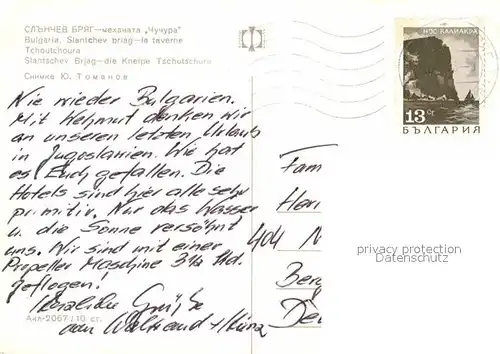 СЛЪНЧЕВ БРЯГ—механата „Чучура"
Bulgaria. Slantchev briag—la taverne
Tchoutchoura
Slantschev Brjag—die Kneipe Tschutschura
Снимка Ю. Томанов
Nie wieder Bulgarien.
Mit Helmut denken wir
an unseren letzten Urlaub
in Jugoslawien. Wie hat
es Euch gefallen. Die
Hotels sind hier alle sehr
primitiv. Nur das Wasser
u. die Sonne versöhnt
uns. Wir sind mit einer
Propeller Maschine 3½ Std.
geflogen.
Herzliche Grüße
von Waltraud +
Акл-2067/10 ст.
НОС КАЛИАКРА
13 ст
БЪЛГАРИЯ
Fam
404 N
Berg
privacy protection
Datenschutz